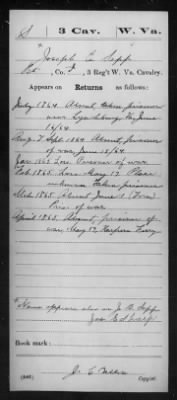 S | 3 Cav. | W. Va.
Joseph E. Sipp
Pvt., Co. I, 3 Reg't W. Va. Cavalry.
Appears on Returns as follows:
July 1864. Absent, taken prisoner
near Lynchburg Va June
18/64.
Aug. & Sept. 1864 Absent, prisoner
of war, June 18/64.
Jan. 1865 Prisoner of war
Feb. 1865. May 17. Place
taken prisoner
Mch 1865 Absent June 1
Pris. of war.
April 1865. Absent, prisoner of
war, May 17, Harpers Ferry
Name appears also as J. E. Sipp
Jos.
Book mark:
J. C.
Copyist.